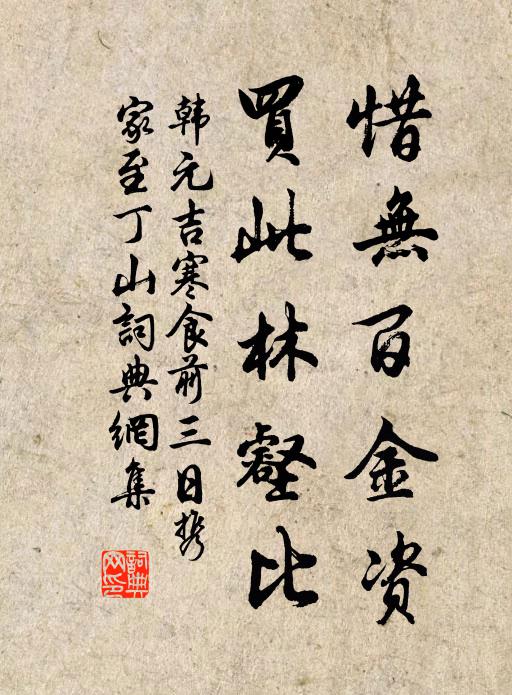 惜無百金资
買此林壑比
韩元吉寒食前三日携
家至丁山詞典網集
詞典网印